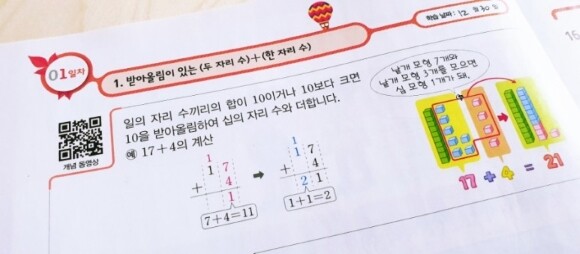 01일차
1. 받아올림이 있는 (두 자리 수)+(한 자리 수)
학습 날짜: 12월 30일
16
개념 동영상
일의 자리 수끼리의 합이 10이거나 10보다 크면
10을 받아올림하여 십의 자리 수와 더합니다.
예 17+4의 계산
1
1 7
+ 4
1
7+4=11
1
1 7
+ 4
2 1
1+1=2
낱개 모형 7개와
낱개 모형 3개를 모으면
십 모형 1개가 돼.
17 + 4 = 21